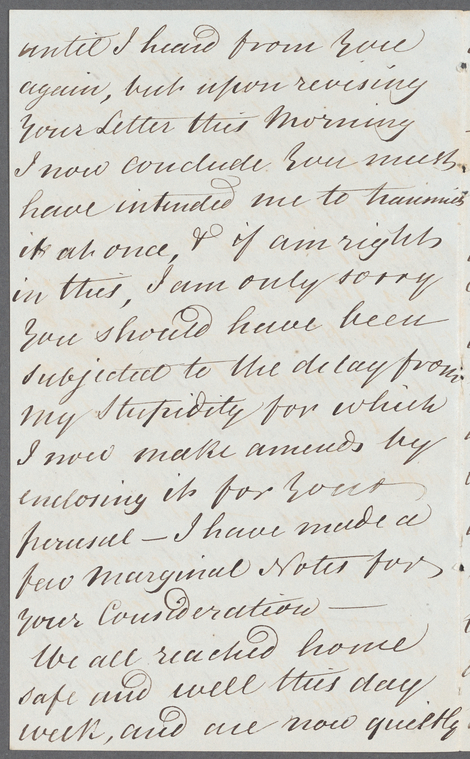 until I heard from you
again, but upon revising
your Letter this Morning
I now conclude you must
have intended me to transmit
it at once, & if am right
in this, I am only sorry
you should have been
subjected to the delay from
my Stupidity for which
I now make amends by
enclosing it for your
perusal — I have made a
few Marginal Notes for
your Consideration —
We all reached home
safe and well this day
week, and are now quietly